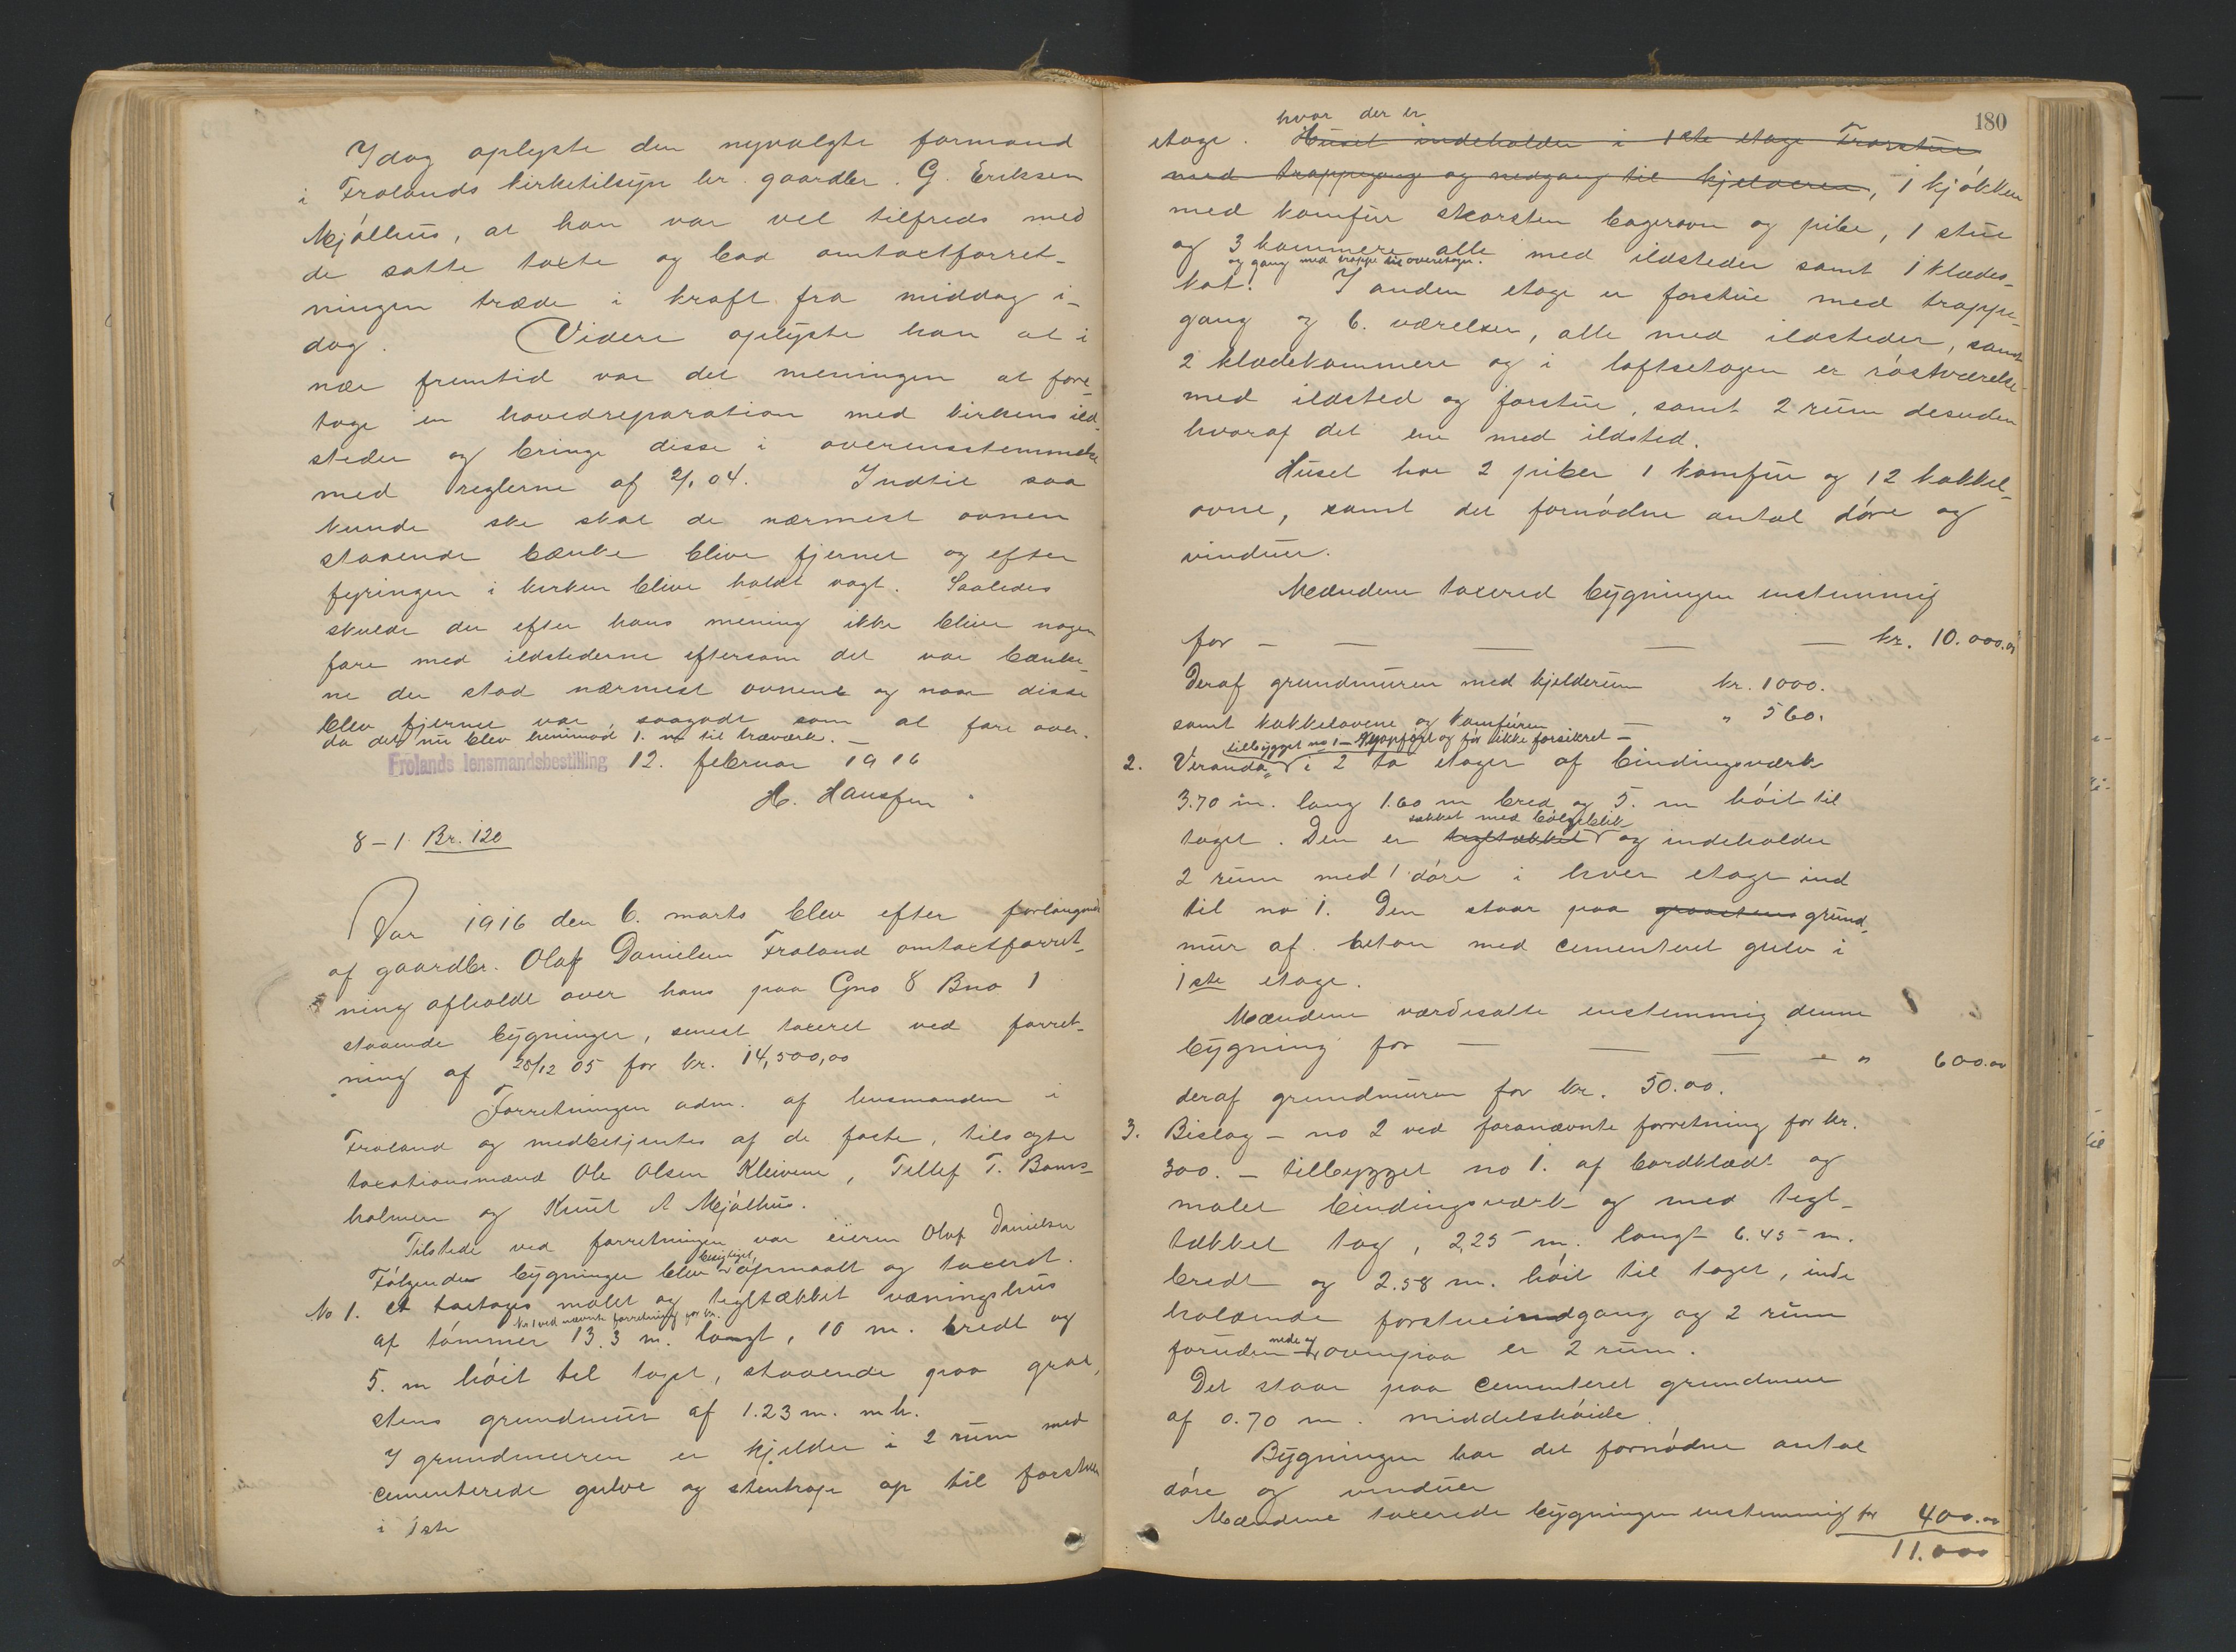 Idag oplyste den nyvalgte formand
i Frolands kirketilsyn hr. gaardbr. G. Eriksen
Mjølhus, at han var vel tilfreds med
de satte taxte og bad omtaxtforret-
ningen træde i kraft fra middag i-
dag. Videre oplyste han at i
nær fremtid var det meningen at fore-
tage en hovedreparation med kirkens ild-
steder og bringe disse i overensstemmelse
med reglerne af 2/1 04. Indtil saa
kunde ske skal de nærmest ovnen
staaende bænke blive fjernet og efter
fyringen i kirken blive holdt vagt. Saaledes
skulde der efter hans mening ikke blive nogen
fare med ildstederne eftersom det var bænke-
ne der stod nærmest ovnene og naar disse
blev fjernet var saagodt som al fare over.
da der nu blev henimod 1. m til træværk. —
Frolands lensmandsbestilling 12. februar 1916
H. Hansen
8-1 Br. 120
Aar 1916 den 6. marts blev efter forlangende
af gaardbr. Olaf Danielsen Froland omtaxtforret-
ning afholdt over hans paa Gno 8 Bno 1
staaende bygninger, senest taxeret ved forret-
ning af 20/12 05 for kr. 14,500,00
Forretningen adm. af lensmanden i
Froland og medbetjentes af de faste, tilsagte
taxationsmænd Ole Olsen Kleivene, Tellef T. Boms-
holmen og Knut A Mjølhus.
Tilstede ved forretningen var eieren Olaf Danielsen
besigtiget,
Følgende bygninger blev opmaalt og taxeret.
No 1. Et toetages malet og tegltækket vaaningshus
No 1 ved nævnte forretning for kr.
af tømmer 13.3 m. langt, 10 m. bredt og
5. m høit til taget, staaende paa graa-
stens grundmur af 1.23 m. m.h.
I grundmuren er kjelder i 2 rum med
cementerede gulve og stentrap op til forstuen
i 1ste
180
hvor der er
etage. Huset indeholder i 1ste etage Frorstue
med trappegang og nedgang til kjelderen, 1 kjøkken
med komfur skorsten bagerovn og pibe, 1 stue
og 3 kammere alle med ildsteder samt 1 klædes-
og gang med trappe til overetagen.
kot. I anden etage er forstue med trappe-
gang og 6. værelser, alle med ildsteder, samt
2 klædekammere og i loftsetagen er røstværelse
med ildsted og forstue, samt 2 rum desuden
hvoraf det ene med ildsted.
Huset har 2 piber 1 komfur og 12 kakkel-
ovne, samt det fornødne antal døre og
vinduer.
Mændene taxered bygningen enstemmig
for — — — — — kr. 10.000.00
Deraf grundmuren med kjelderum kr. 1000.
samt kakkelovene og komfuren — " 560.
tilbygget no 1 — Nyopført og før ikke forsikret —
2. Veranda i 2 to etager af bindingsværk
3.70 m. lang 1.60 m bred og 5. m høit til
tækket med bølgeblik
taget. Den er tegltækket og indeholder
2 rum med 1 døre i hver etage ind
til no 1. Den staar paa graastens grund-
mur af beton med cementeret gulv i
1ste etage.
Mændene værdisatte enstemmig denne
bygning for — — — — " 600.00
deraf grundmuren for kr. 50.00.
3. Bislag — no 2 ved forannævnte forretning for kr.
300. — tilbygget no 1. af bordklædt og
malet bindingsværk og med tegl-
tækket tag, 2,25 m. langt 6.45 m.
bredt og 2.58 m. høit til taget, inde
holdende forstueindgang og 2 rum
nede og
foruden ovenpaa er 2 rum.
Det staar paa cementeret grundmur
af 0.70 m. middelshøide.
Bygningen har det fornødne antal
døre og vinduer
Mændene taxerede bygningen enstemmig for 400.00
11.000